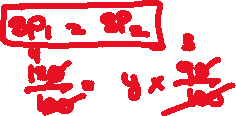 SP₁ = SP₂
4 3
120/100 = y × 90/100